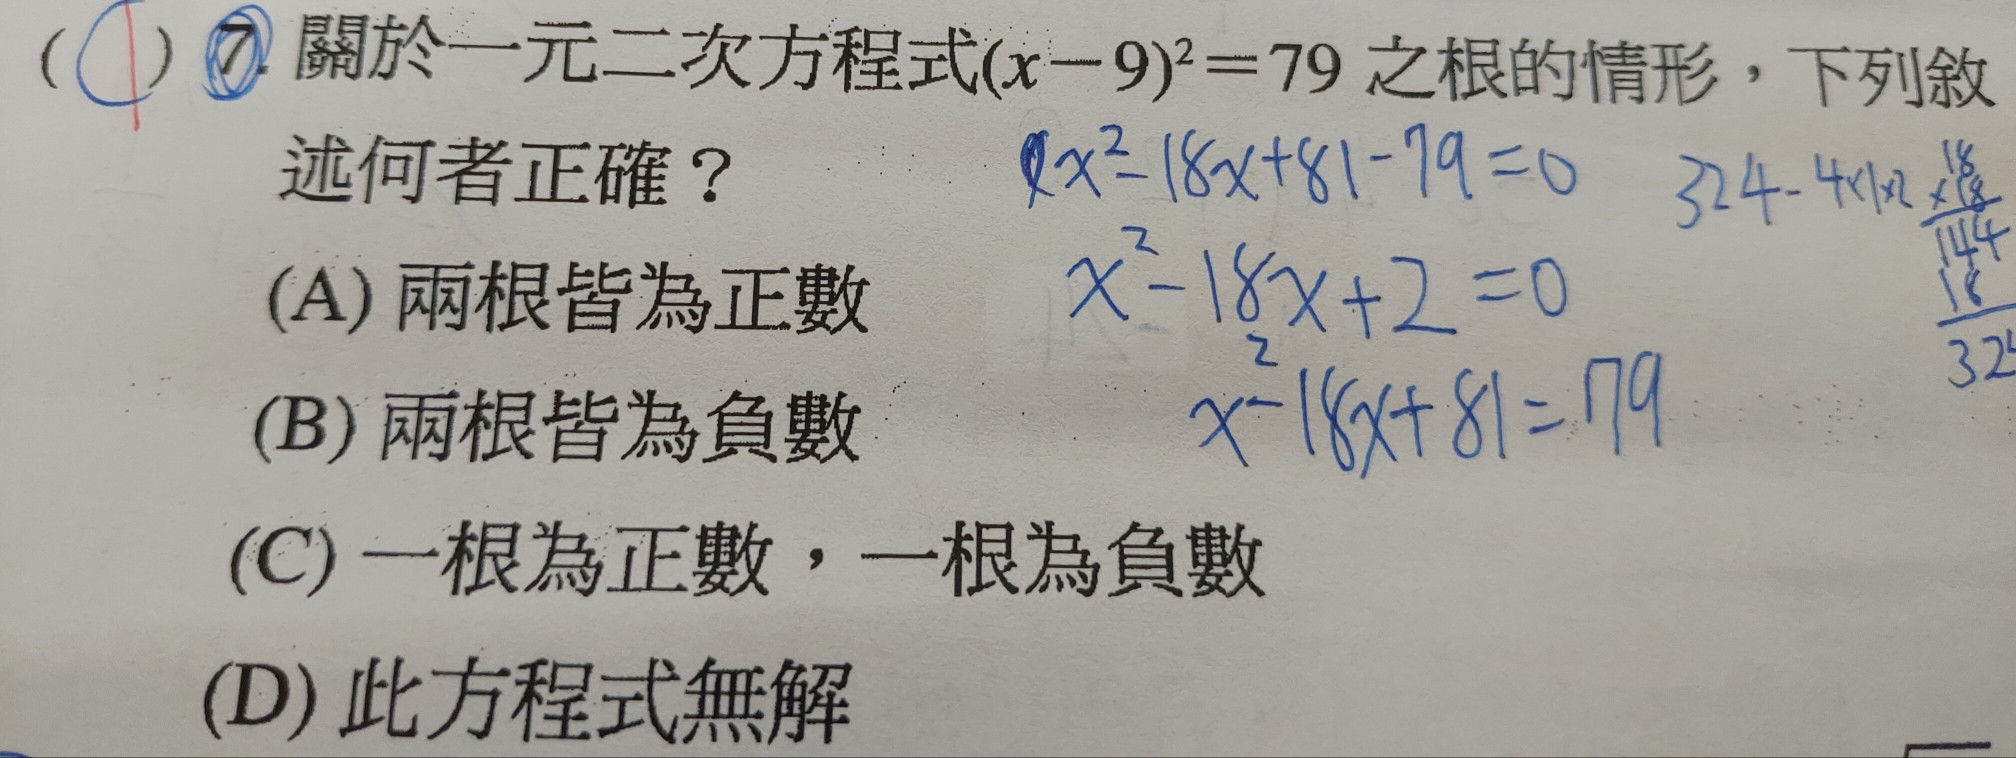 ( C ) 7. 關於一元二次方程式(x－9)²＝79 之根的情形，下列敘
述何者正確？
x²－18x+81－79＝0
324－4×1×2
18
×18
144
18
32
(A) 兩根皆為正數
x²－18x+2＝0
(B) 兩根皆為負數
x²－18x+81＝79
(C) 一根為正數，一根為負數
(D) 此方程式無解